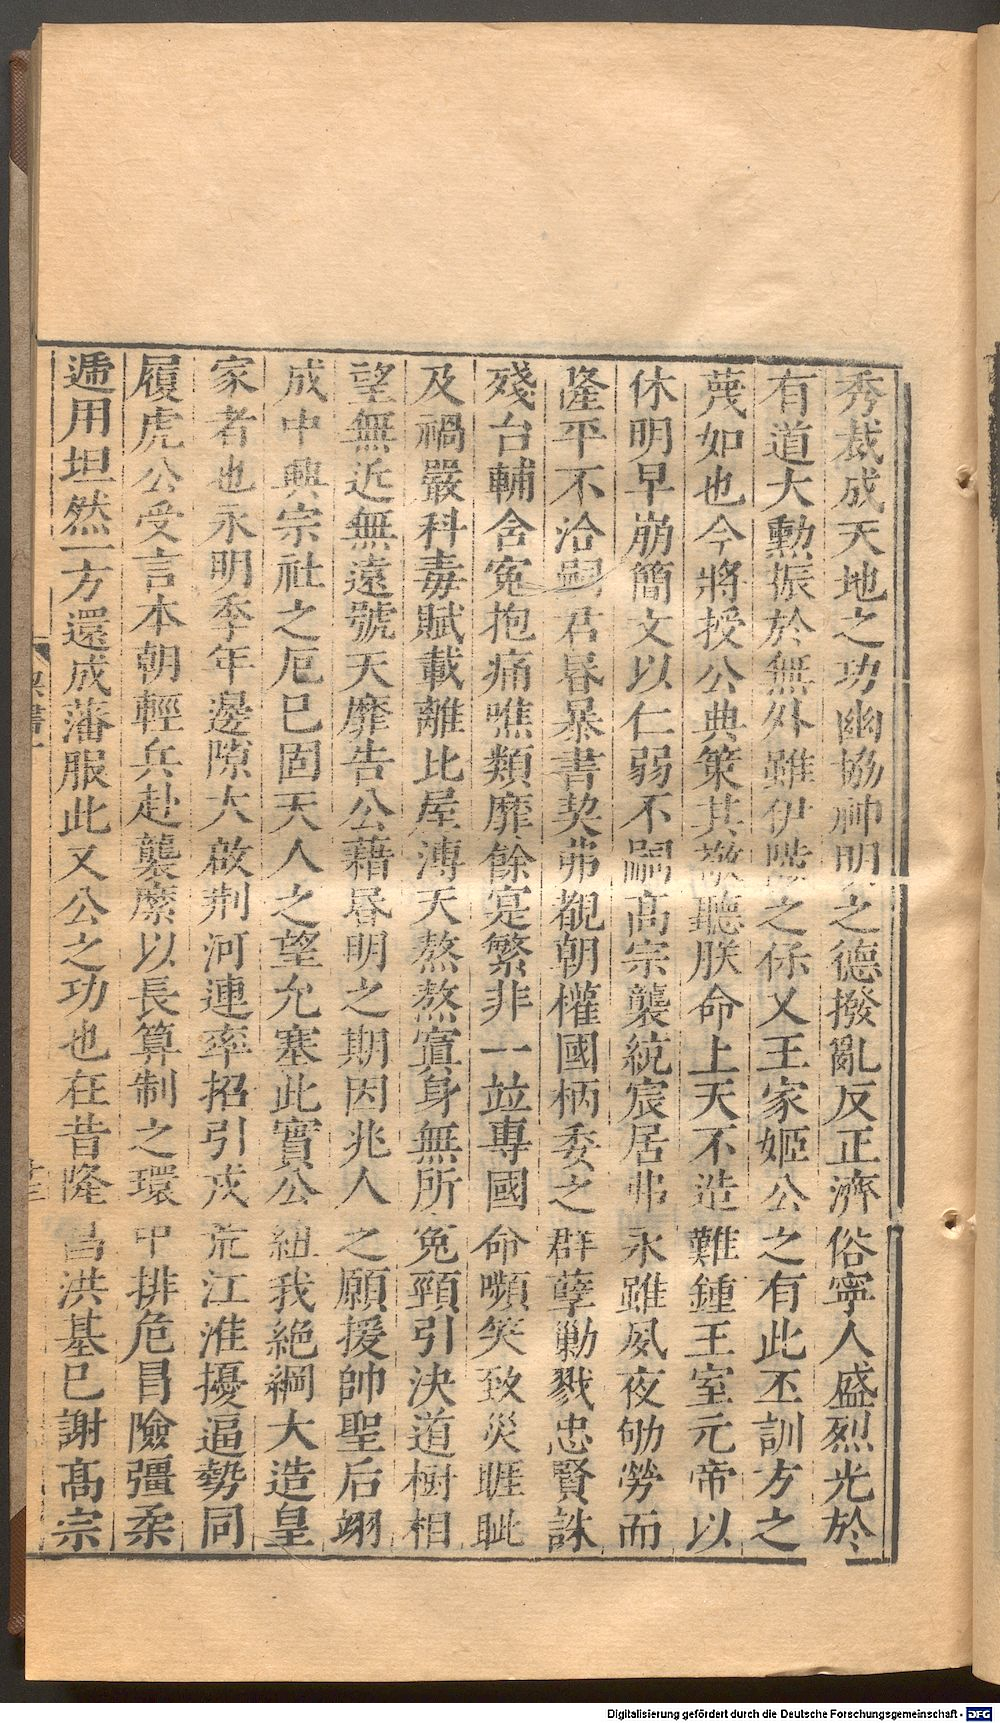 秀裁成天地之功幽協神明之德撥亂反正濟俗寧人盛烈光於
有道大勳振於無外雖伊陟之保乂王家姬公之有此丕訓方之
蔑如也今將授公典策其敬聽朕命上天不造難鍾王室元帝以
休明早崩簡文以仁弱不嗣高宗襲統宸居弗永雖夙夜劬勞而
隆平不洽嗣君昬暴書契弗覩朝權國柄委之群孽勦戮忠賢誅
殘台輔含寃抱痛噍類靡餘寔繁非一竝專國命嚬笑致災睚眦
及禍嚴科毒賦載離比屋溥天熬熬寘身無所寃頸引決道樹相
望無近無遠號天靡告公藉昬明之期因兆人之願援帥聖后翊
成中興宗社之厄巳固天人之望允塞此實公紐我絕綱大造皇
家者也永明季年邊隙大啟荆河連率招引戎荒江淮擾逼勢同
履虎公受言本朝輕兵赴襲縻以長算制之環中排危冒險彊柔
遞用坦然一方還成藩服此又公之功也在昔隆昌洪基巳謝高宗
梁書一
廿三
Digitalisierung gefördert durch die Deutsche Forschungsgemeinschaft - DFG